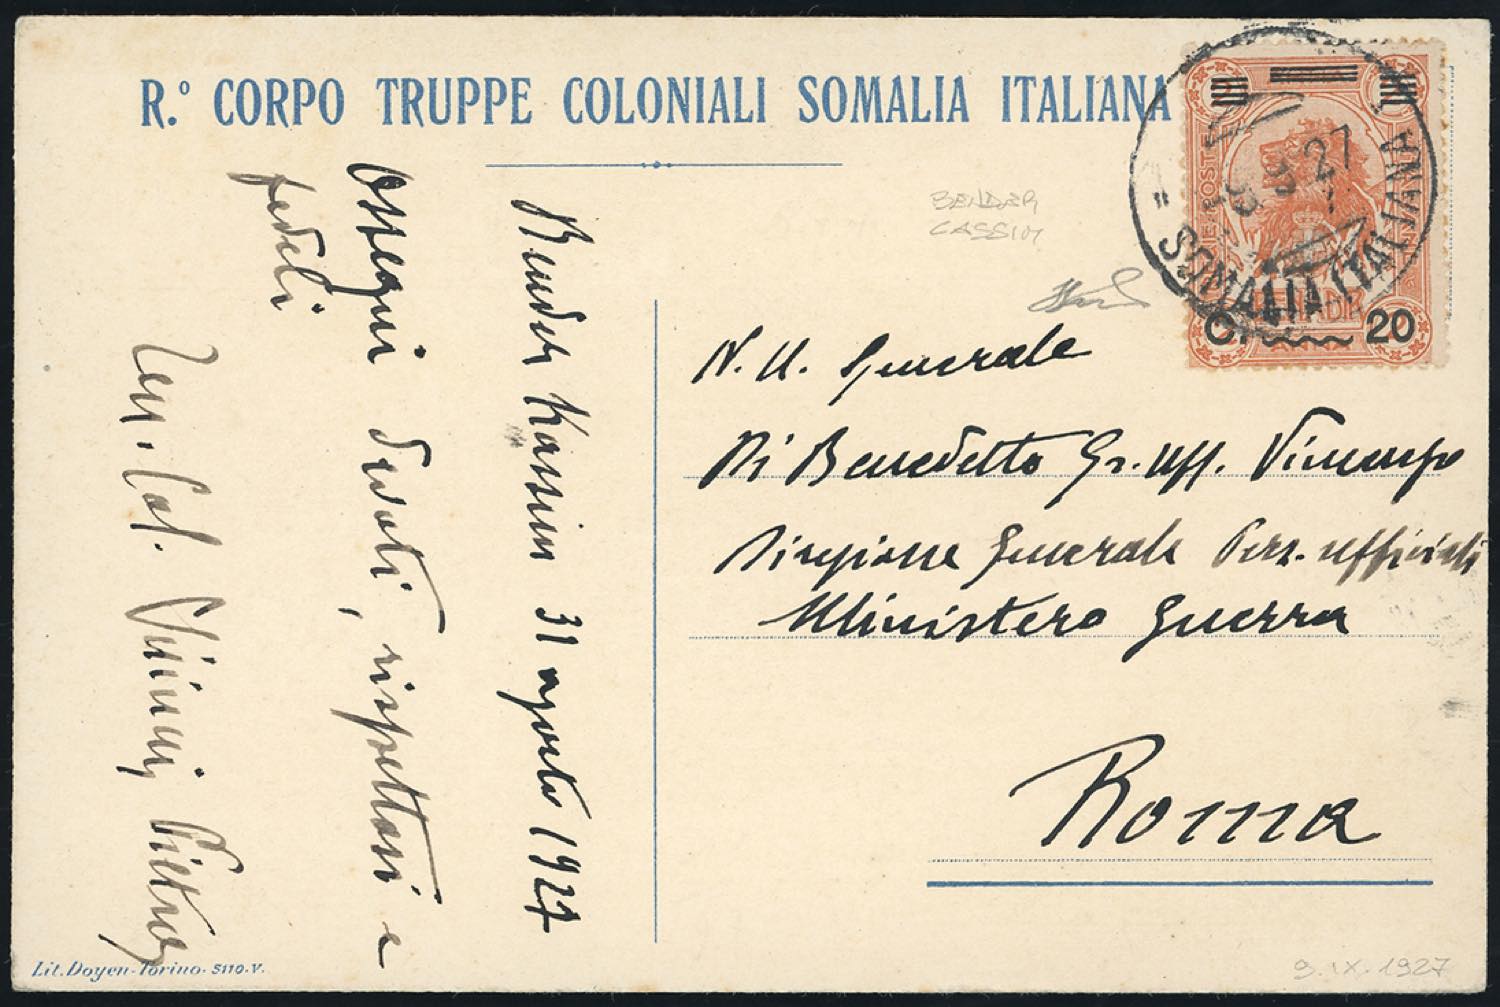 R.º CORPO TRUPPE COLONIALI SOMALIA ITALIANA
Bender Kassim 31 agosto 1927
Ossequi devoti, rispettosi e
fedeli
Ten. Col. Pietro
BENDER
CASSIM
9 27
SOMALIA ITALIANA
C. 20
N. U. Generale
Di Benedetto Gr. Uff. Vincenzo
Direzione Generale Pers. ufficiali
Ministero Guerra
Roma
Lit. Doyen-Torino- 5110.V.
9.IX.1927